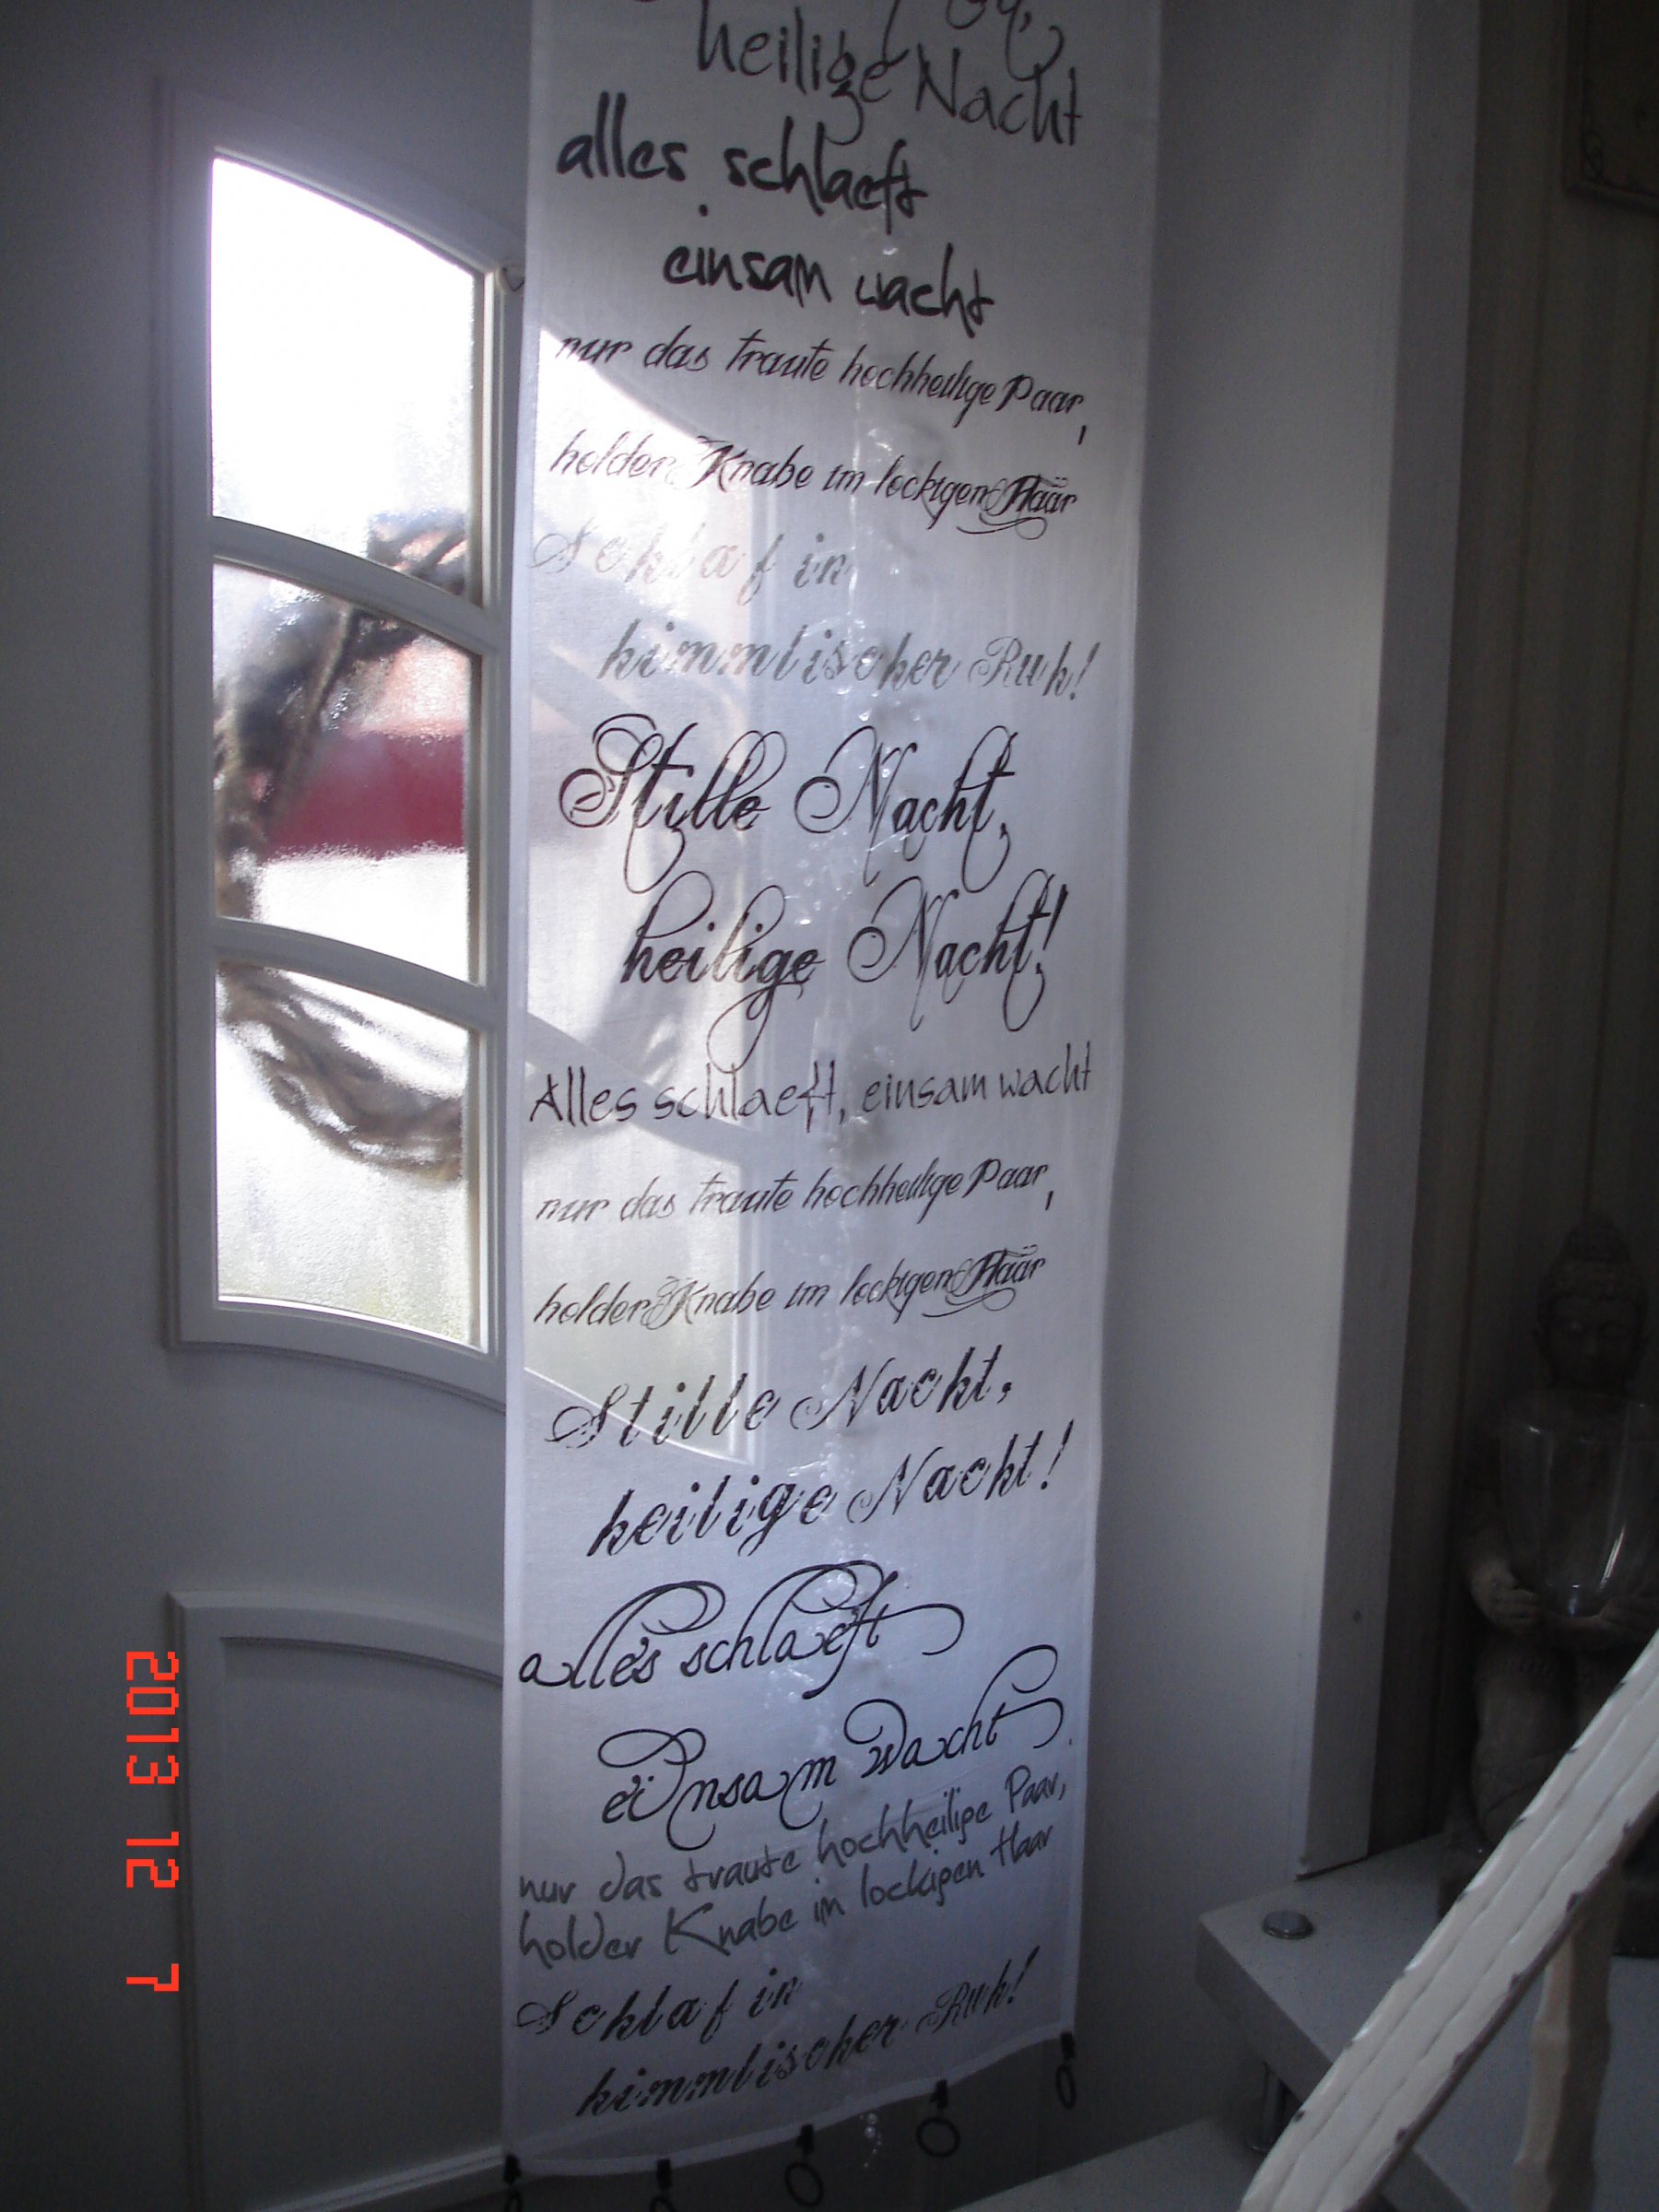 heilige Nacht
alles schlaeft
einsam wacht
nur das traute hochheilige Paar,
holder Knabe im lockigen Haar
Schlaf in
himmlischer Ruh!
Stille Nacht,
heilige Nacht!
Alles schlaeft, einsam wacht
nur das traute hochheilige Paar,
holder Knabe im lockigen Haar
Stille Nacht,
heilige Nacht!
alles schlaeft
einsam wacht
nur das traute hochheilige Paar,
holder Knabe im lockigen Haar
Schlaf in
himmlischer Ruh!
2013 12 7